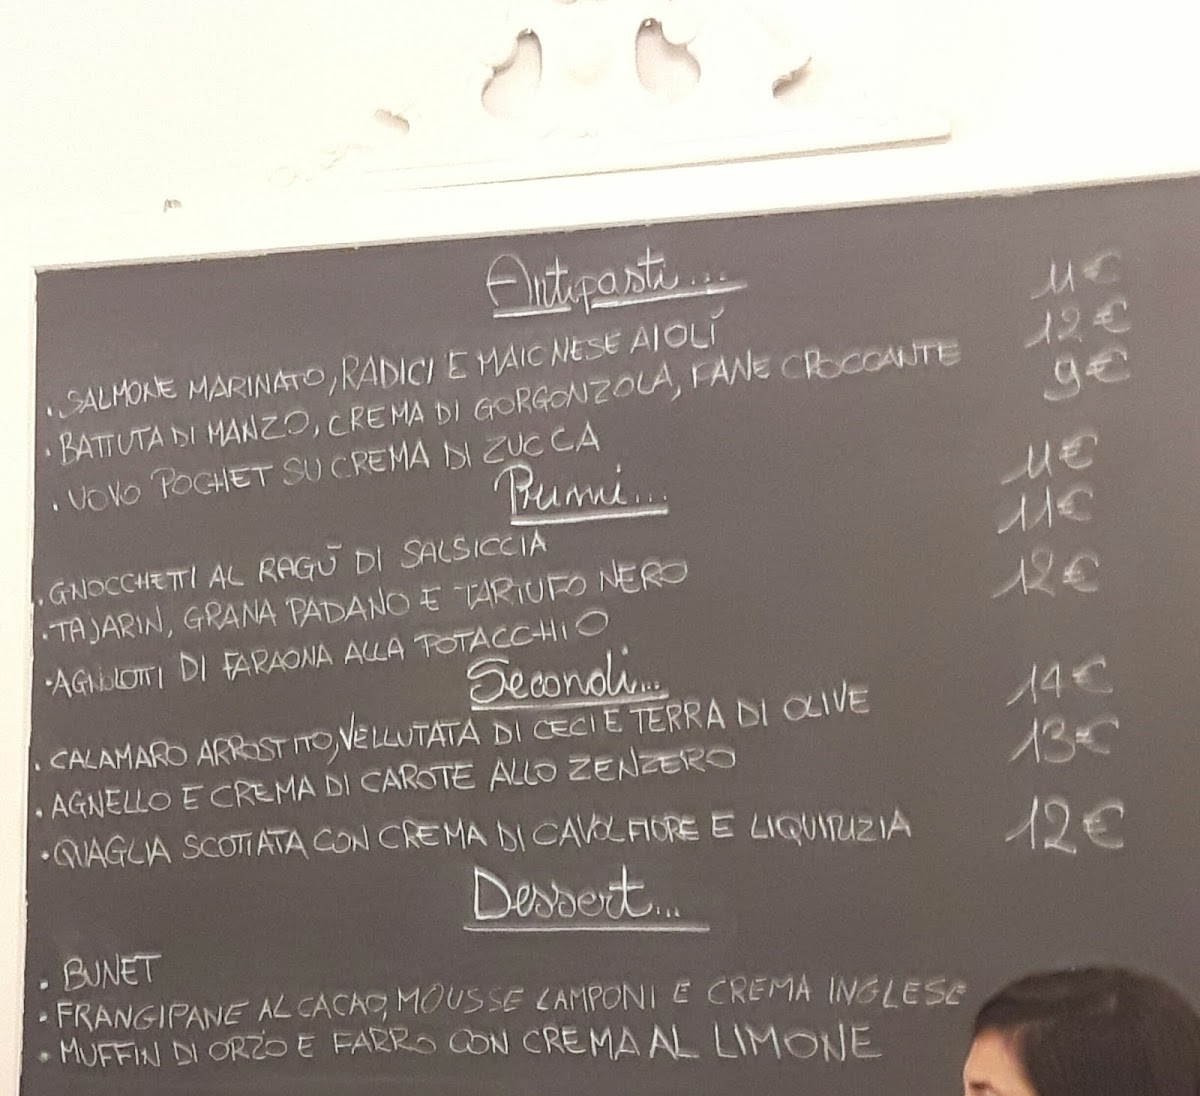 Antipasti...
• SALMONE MARINATO, RADICI E MAIONESE AIOLÍ 11€
• BATTUTA DI MANZO, CREMA DI GORGONZOLA, PANE CROCCANTE 12€
• UOVO POCHET SU CREMA DI ZUCCA 9€
Primi...
• GNOCCHETTI AL RAGÚ DI SALSICCIA 11€
• TAJARIN, GRANA PADANO E TARTUFO NERO 11€
• AGNOLOTTI DI FARAONA ALLA POTACCHIO 12€
Secondi...
• CALAMARO ARROSTITO, VELLUTATA DI CECI E TERRA DI OLIVE 14€
• AGNELLO E CREMA DI CAROTE ALLO ZENZERO 13€
• QUAGLIA SCOTTATA CON CREMA DI CAVOLFIORE E LIQUIRIZIA 12€
Dessert...
• BUNET
• FRANGIPANE AL CACAO, MOUSSE LAMPONI E CREMA INGLESE
• MUFFIN DI ORZO E FARRO CON CREMA AL LIMONE